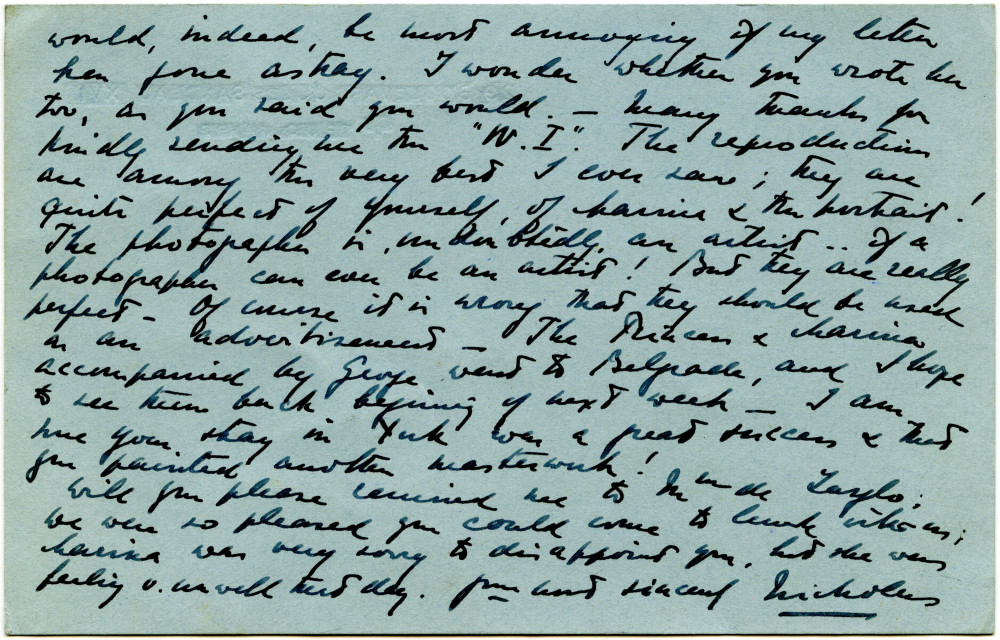 would, indeed, be most annoying if my letter
has gone astray. I wonder whether you wrote her
too, as you said you would. — Many thanks for
kindly sending me the "W.I.". The reproductions
are among the very best I ever saw; they are
quite perfect of yourself, of Marina & the portrait!
The photographer is, undoubtedly, an artist .. if a
photographer can ever be an artist! But they are really
perfect — Of course it is wrong that they should be used
as an advertisement — The Princess & Marina
accompanied by George went to Belgrade, and I hope
to see them back beginning of next week — I am
sure your stay in York was a great success & that
you painted another masterwork!
Will you please remind me to Mme de Laszlo;
we were so pleased you could come to lunch with us;
Marina was very sorry to disappoint you, but she was
feeling v. unwell that day. Your most sincerely Nicholas